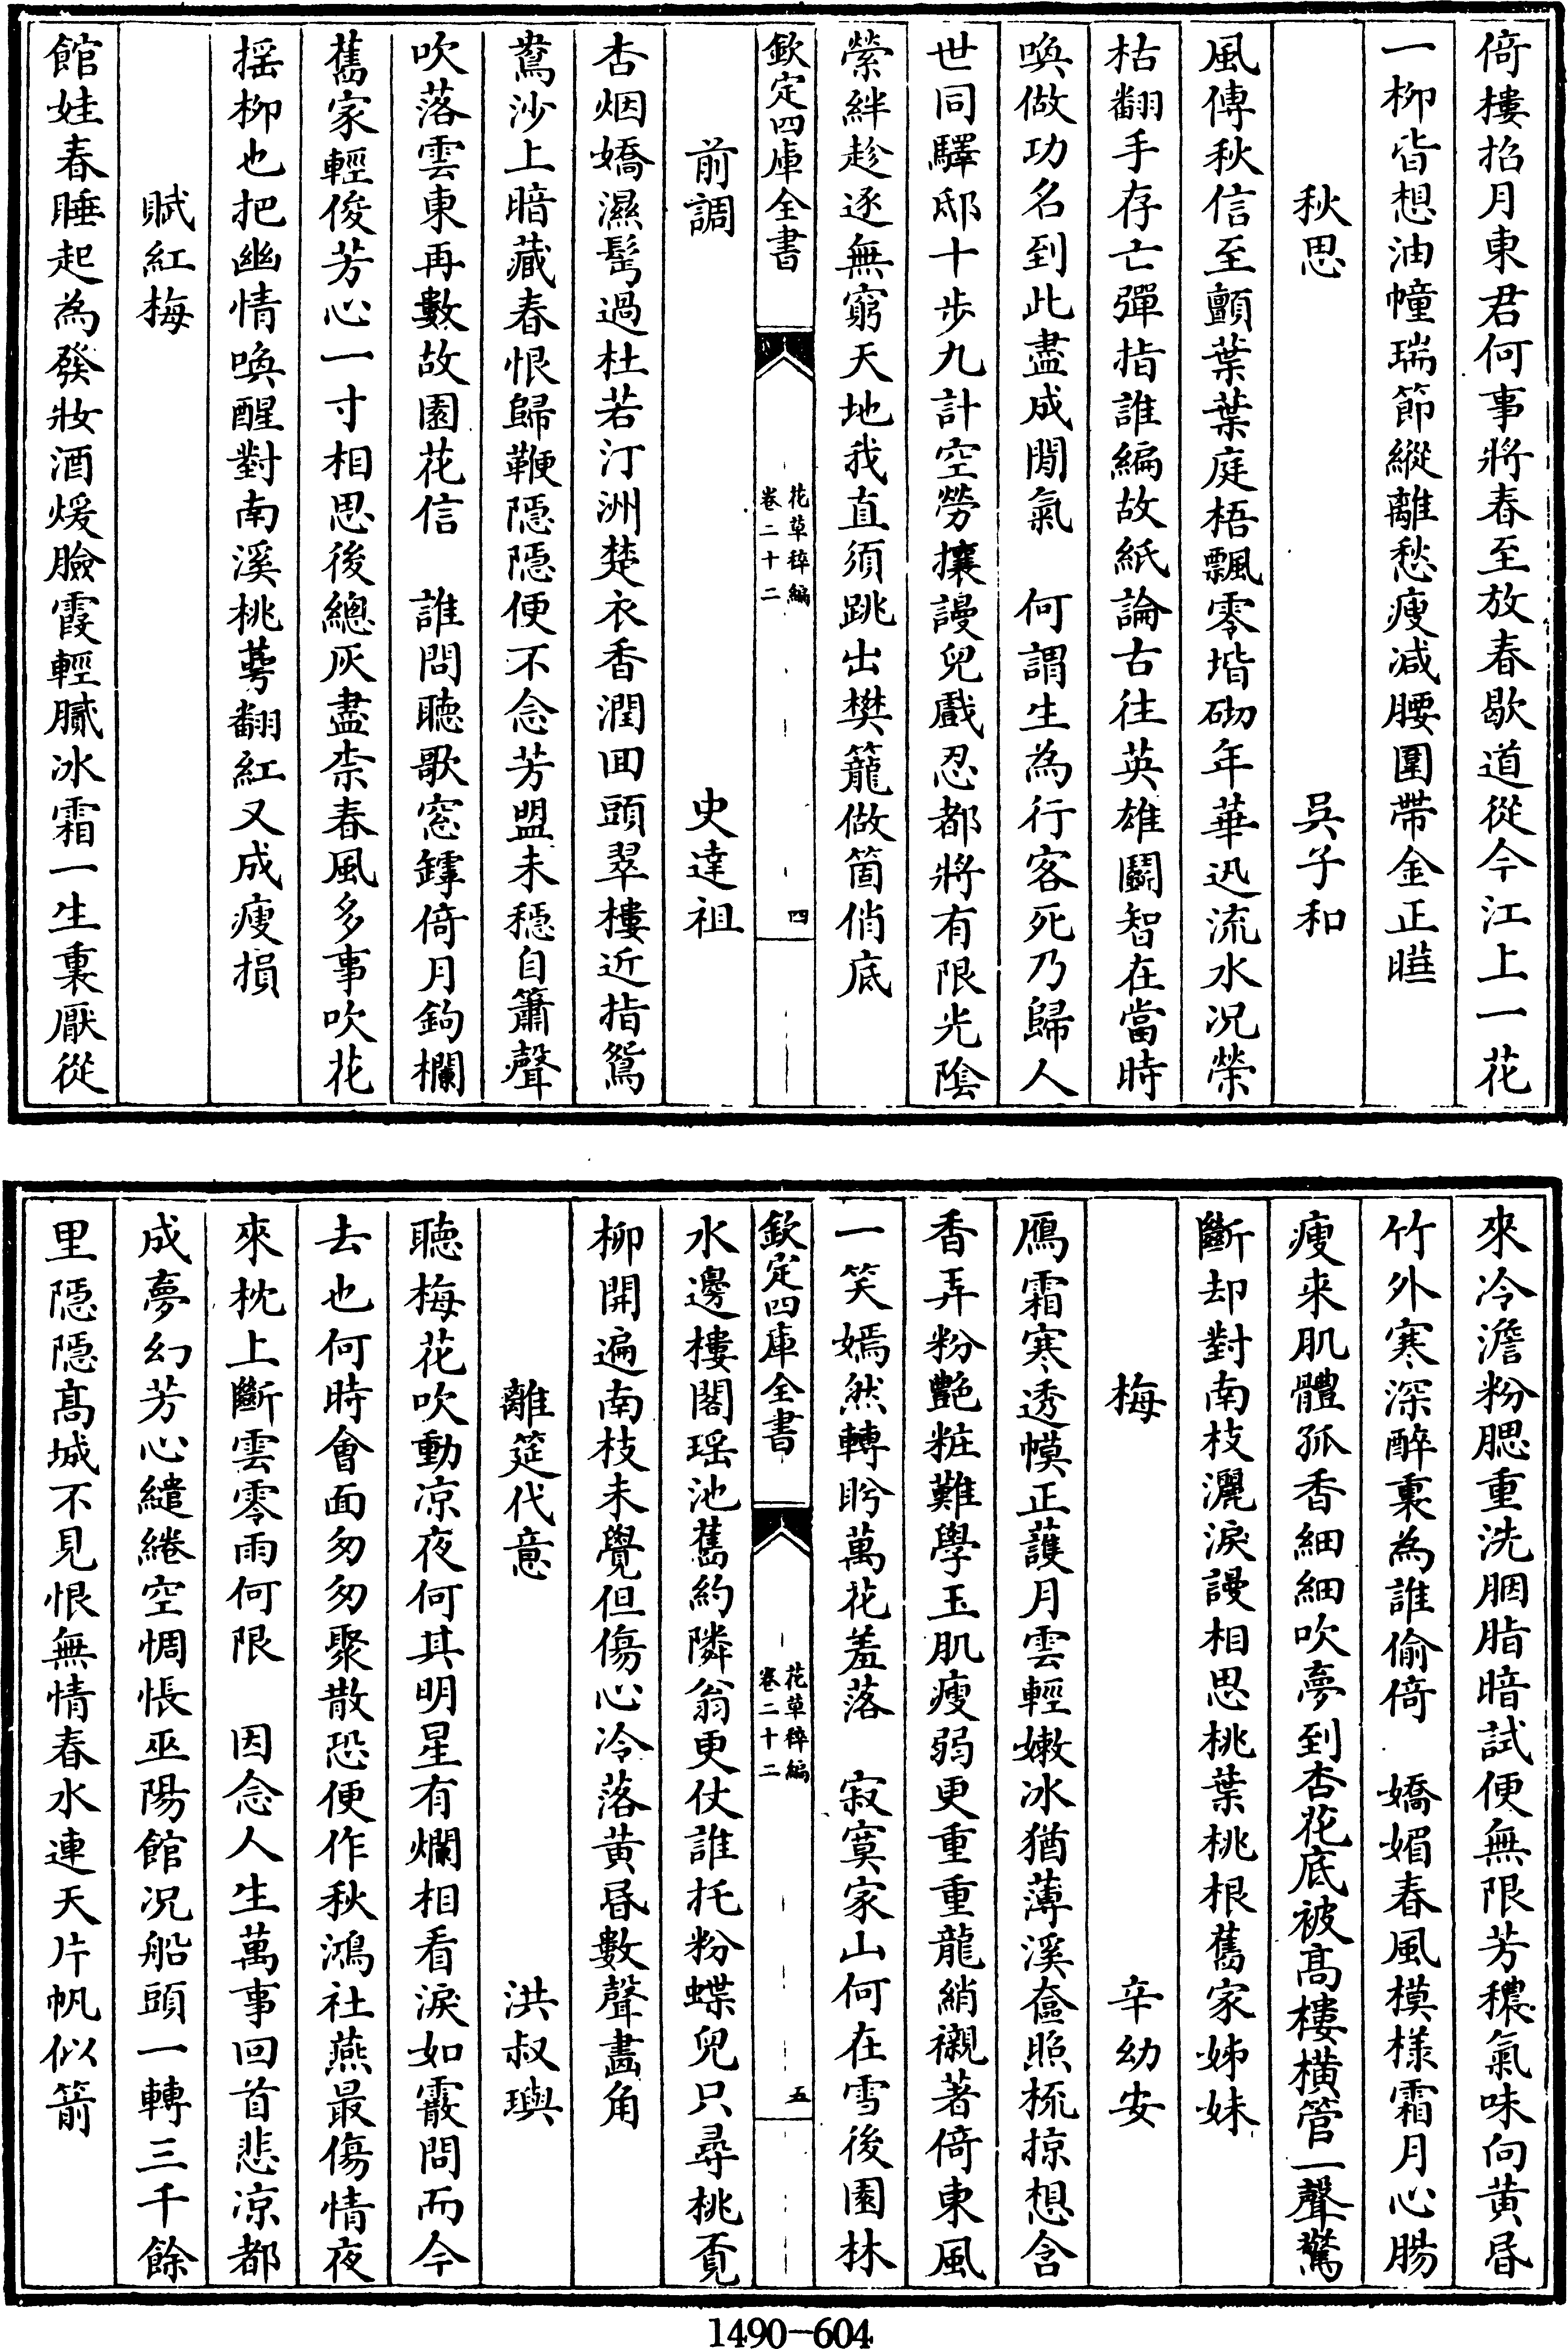 倚樓招月東君何事將春至放春歇道從今江上一花
一柳皆想油幢瑞節縱離愁瘦减腰圍帶金正暀
秋思　吳子和
風傳秋信至顫葉葉庭梧飄零堦砌年華迅流水况榮
枯翻手存亡彈指誰編故紙論古往英雄鬭智在當時
喚做功名到此盡成閒氣　何謂生為行客死乃歸人
世同驛邸十步九計空勞攘謾兒戲忍都將有限光陰
縈絆趁逐無窮天地我直須跳出樊籠做箇俏底
欽定四庫全書　花草稡編　卷二十二　四
前調　史達祖
杏烟嬌濕鬢過杜若汀洲楚衣香潤回頭翠樓近指鴛
鴦沙上暗藏春恨歸鞭隠隠便不念芳盟未穏自簫聲
吹落雲東再數故園花信　誰問聽歌窓罅倚月鉤欄
舊家輕俊芳心一寸相思後總灰盡柰春風多事吹花
揺柳也把幽情喚醒對南溪桃萼翻紅又成瘦損
賦紅梅
館娃春睡起為發妝酒煖臉霞輕膩冰霜一生裏厭從
來冷澹粉腮重洗胭脂暗試便無限芳穠氣味向黄昏
竹外寒深醉裏為誰偷倚　嬌媚春風模様霜月心腸
瘦来肌體孤香細細吹夢到杏花底被髙樓横管一聲驚
斷却對南枝灑淚謾相思桃葉桃根舊家姊妹
梅　辛幼安
鴈霜寒透幙正護月雲輕嫩冰猶薄溪奩照梳掠想含
香弄粉艶粧難學玉肌瘦弱更重重龍綃襯著倚東風
一笑嫣然轉盻萬花羞落　寂寞家山何在雪後園林
欽定四庫全書　花草稡編　卷二十二　五
水邊樓閣瑶池舊約隣翁更仗誰托粉蝶兒只尋桃覔
柳開遍南枝未覺但傷心冷落黄昏數聲畫角
離筵代意　洪叔璵
聴梅花吹動凉夜何其明星有爛相看淚如霰問而今
去也何時會面匆匆聚散恐便作秋鴻社燕最傷情夜
來枕上斷雲零雨何限　因念人生萬事回首悲凉都
成夢幻芳心繾綣空惆悵巫陽館况船頭一轉三千餘
里隠隠髙城不見恨無情春水連天片帆似箭
1490—604